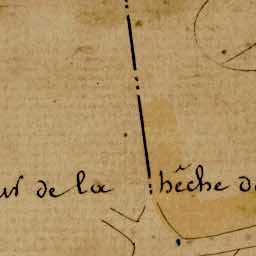 ur de la hêche de